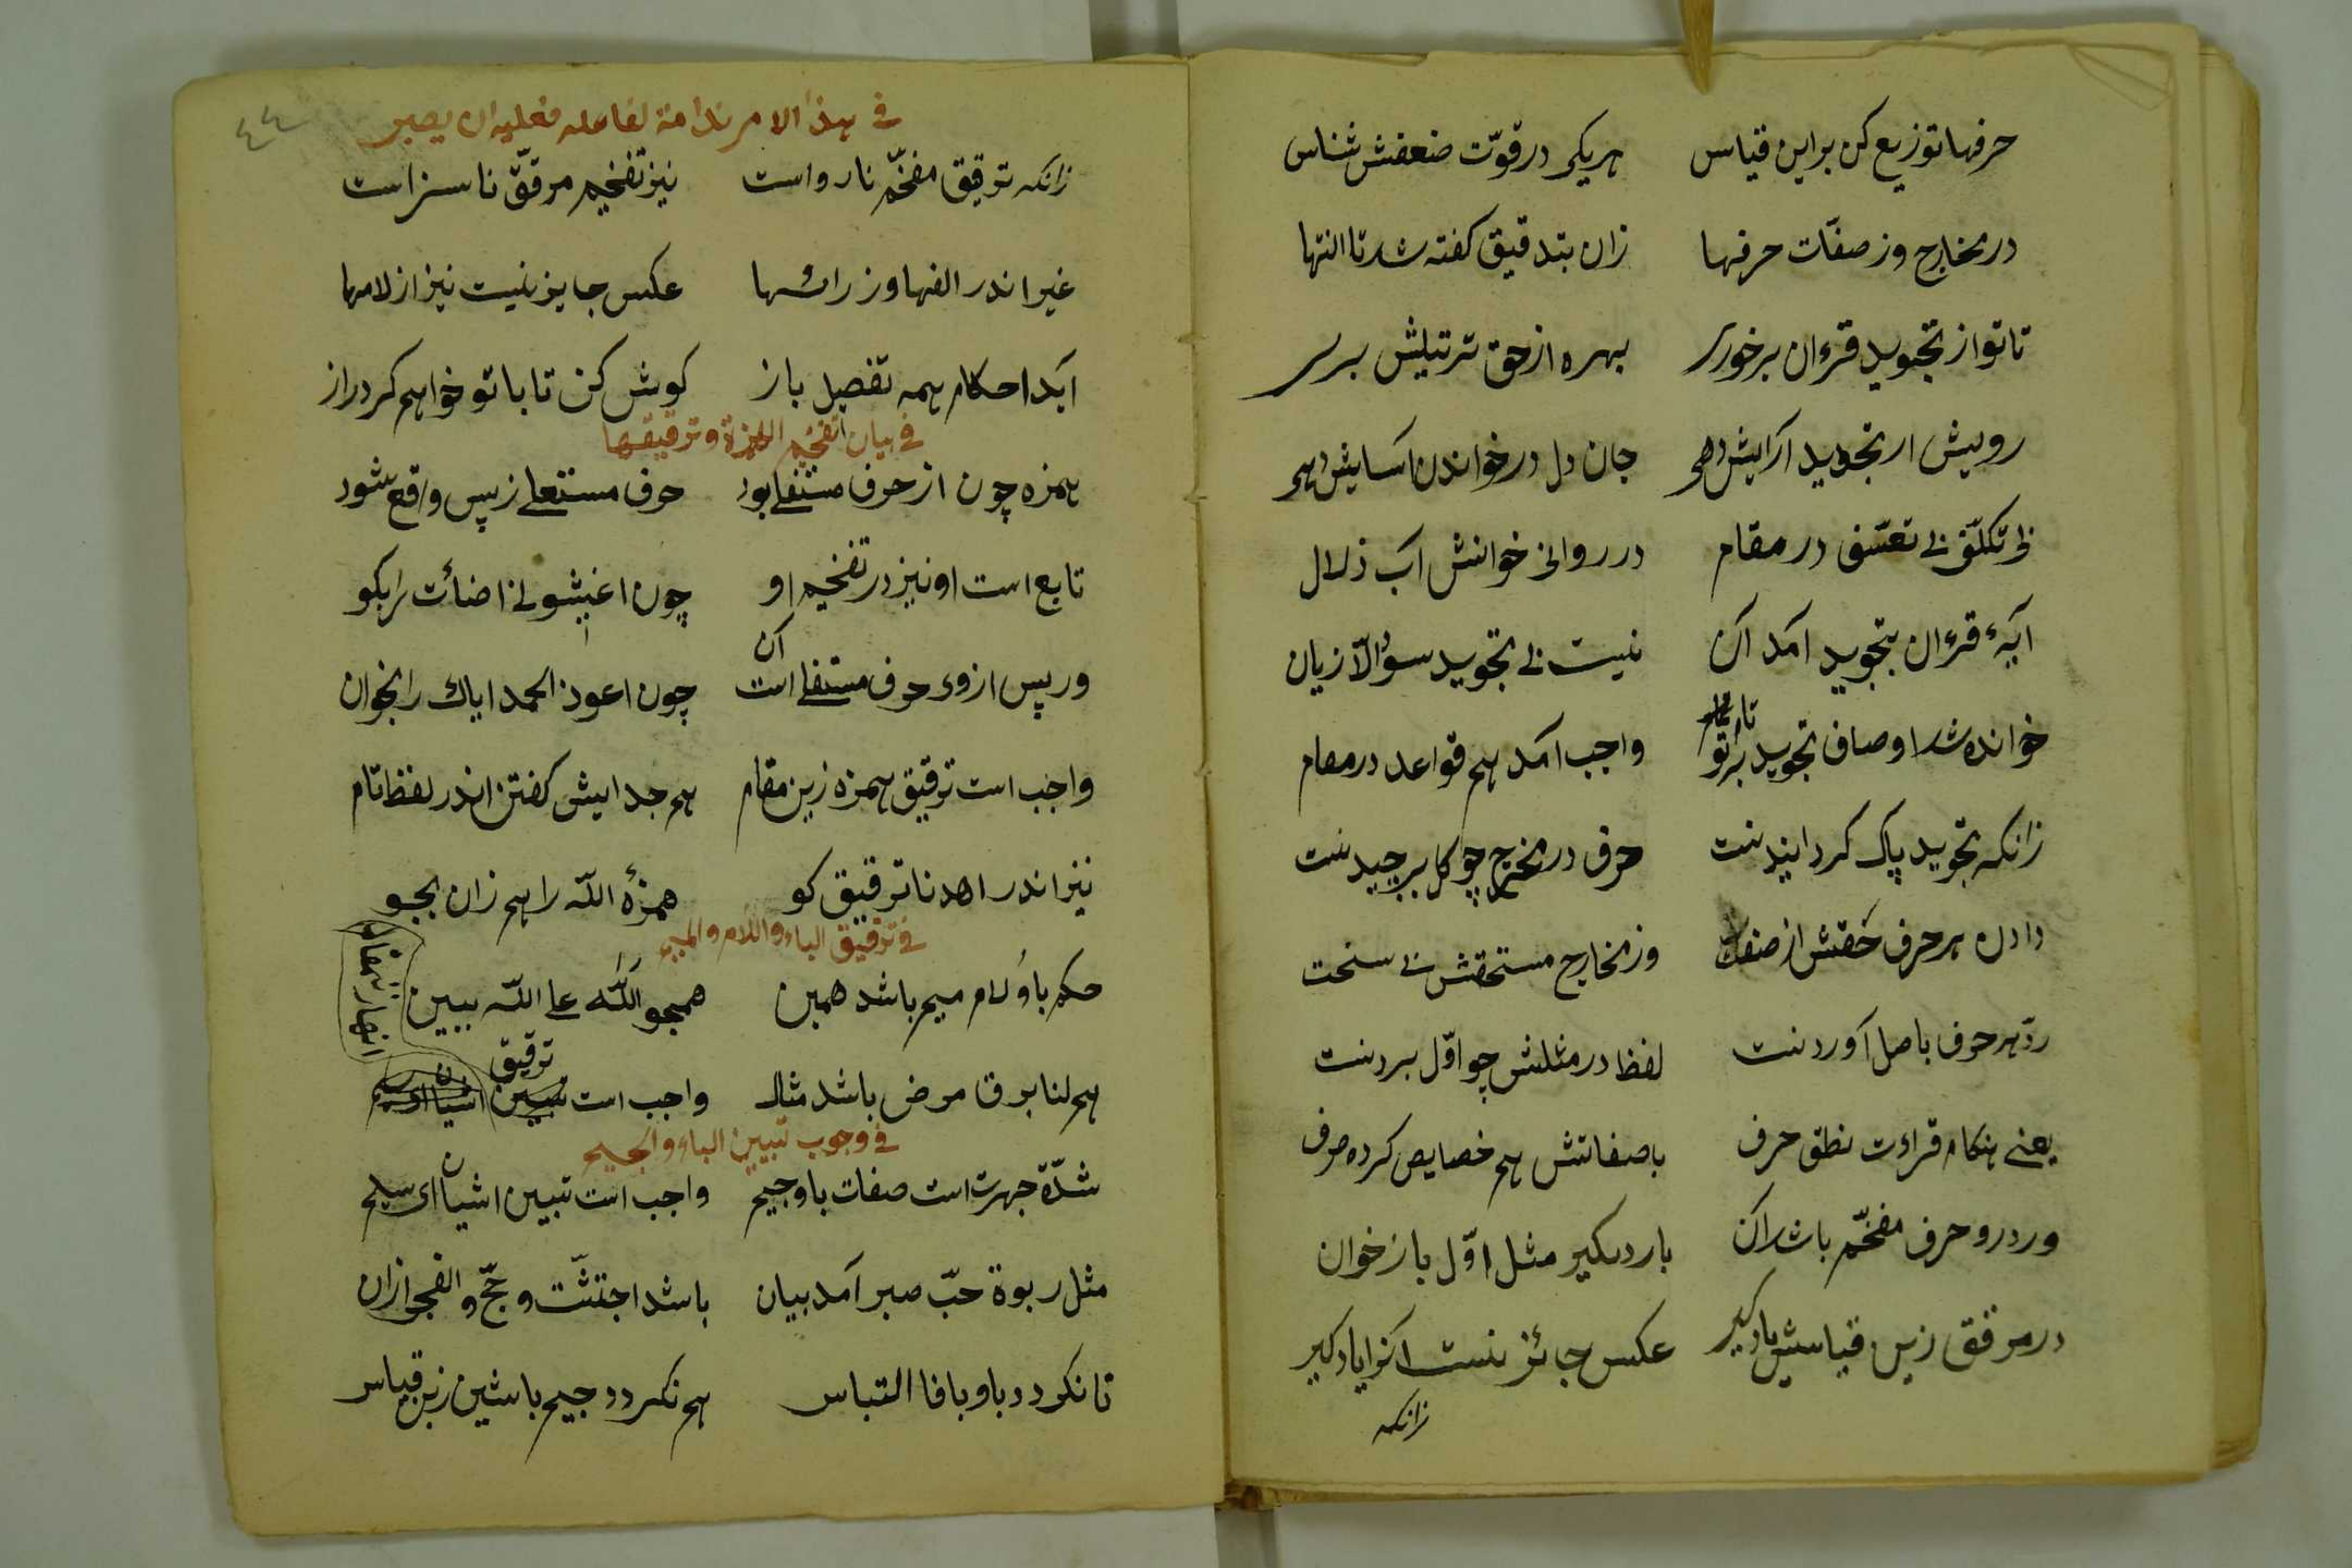 حرفها توزیع کن براین قیاس هریکی درقوّت ضعفش شناس
در مخارج وز صفات حرفها زان بتدقیق کفته شد تا انتها
تا تو از تجوید قرءان برخوری بهره از حق ترتیلش بری
رویش ار تجوید آرایش دهی جان دل درخواندن آسایش دهی
بی تکلّف بی تعسّف در مقام در روانی خوانش آب زلال
آیهٔ قرءان بتجوید آمد آن نیست بی تجوید سؤالّا زیان
خوانده شد اوصاف تجوید برتو واجب آمد هم قواعد در مقام
زانکه تجوید پاک کردانیدنست حرف در مخرج چو کل برچیدنست
دادن هر حرف حقش از صفت وز مخارج مستحقش بی سخت
ردّ هر حرف باصل آوردنست لفظ در مثلش چو اوّل بردنست
یعنی هنکام قراءت نطق حرف باصفاتش هم خصایص کرده صرف
ور درو حرف مفخّم باشد آن بار دیکیر مثل اوّل باز خوان
در مرقق زین قیاسش یادکیر عکس جائز نیست آنرا یادکیر
زانکه
٤٤
فی هذا الامر ندامة لفاعله فعلیه ان یصبر
زانکه ترقیق مفخّم نارواست نیز تفخیم مرقّق ناسزاست
غیر اندر الفها وز رائها عکس جایز نیست نیز از لامها
آید احکام همه تفصیل باز کوش کن تا با تو خواهم کرد راز
فی بیان تفخیم الهمزة وترقیقها
همزه چون از حرف مستفلی بود حرف مستعلی زپس واقع شود
تابع است او نیز در تفخیم او چون اغیشونی اضائت را بکو
ور پس ازوی حرف مستفلی است آن چون اعوذ الحمد ایاك را بخوان
واجب است ترقیق همزه زین مقام هم جدایش کفتن اندر لفظ تام
نیز اندر اهدنا ترقیق کو همزهٔ اللّه را هم زان بجو
فی ترقیق الباء واللام والمیم
حکم با و لام میم باشد همین همچو اللّٰه علی اللّه ببین
هم لنا برق مرض باشد مثال واجب است ترقیق
فی وجوب تبیین الباء والجیم
شدّة جهرت است صفات با وجیم واجب است تبیین اشیان ای سلیم
مثل ربوة حبّ صبر آمد بیان باشد اجتثّت و حجّ و الفجر ازان
تا نکردد با و با فا التباس هم نکردد جیم با شین زین قیاس